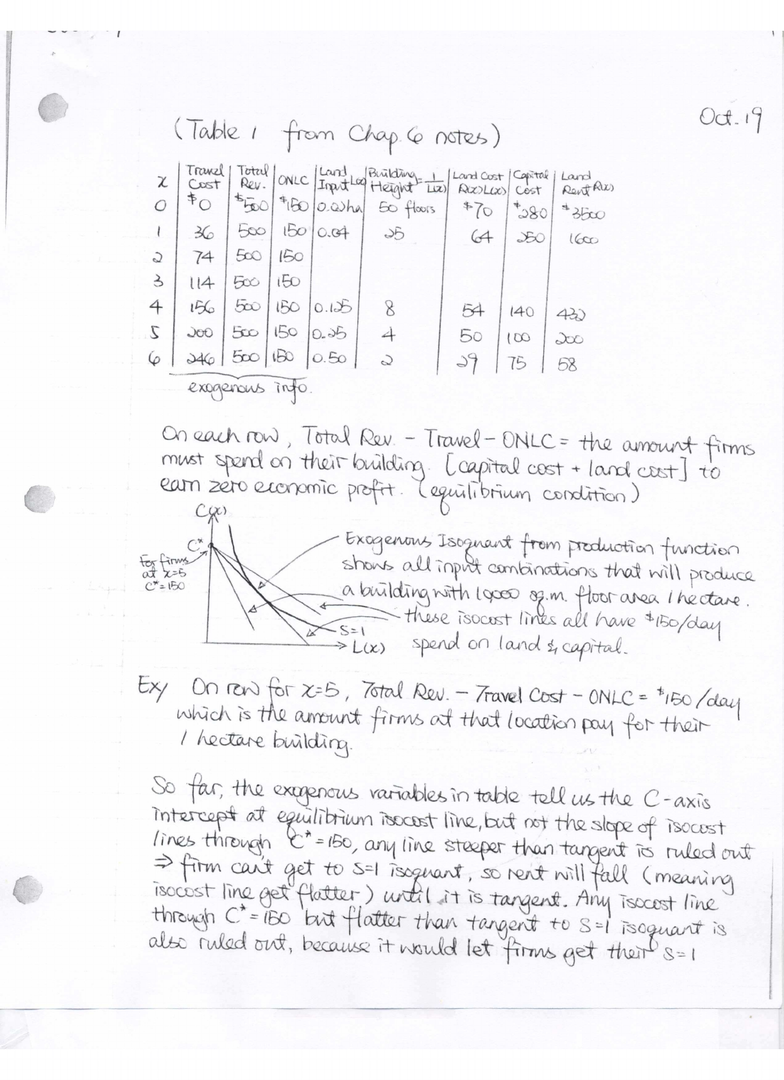 Oct. 19
(Table 1 from Chap. 6 notes)
x | Travel Cost | Total Rev. | ONLC | Land Input L(x) | Building Height = 1/L(x) | Land Cost R(x)L(x) | Capital Cost | Land Rent R(x)
0 | $0 | $500 | $150 | 0.02ha | 50 floors | $70 | $280 | $3500
1 | 36 | 500 | 150 | 0.04 | 25 | 64 | 250 | 1600
2 | 74 | 500 | 150
3 | 114 | 500 | 150
4 | 156 | 500 | 150 | 0.125 | 8 | 54 | 140 | 432
5 | 200 | 500 | 150 | 0.25 | 4 | 50 | 100 | 200
6 | 246 | 500 | 150 | 0.50 | 2 | 29 | 75 | 58
exogenous info.
On each row, Total Rev. - Travel - ONLC = the amount firms
must spend on their building. [capital cost + land cost] to
earn zero economic profit. (equilibrium condition)
C(x)
C*
For firms
at x=5
C*=150
Exogenous Isoquant from production function
shows all input combinations that will produce
a building with 10,000 sq.m. floor area 1 hectare.
these isocost lines all have $150/day
spend on land & capital.
S=1
L(x)
Ex/ On row for x=5, Total Rev. - Travel Cost - ONLC = $150/day
which is the amount firms at that location pay for their
1 hectare building.
So far, the exogenous variables in table tell us the C-axis
intercept at equilibrium isocost line, but not the slope of isocost
lines through C*=150, any line steeper than tangent is ruled out
⇒ firm can't get to S=1 isoquant, so rent will fall (meaning
isocost line get flatter) until it is tangent. Any isocost line
through C*=150 but flatter than tangent to S=1 isoquant is
also ruled out, because it would let firms get their S=1